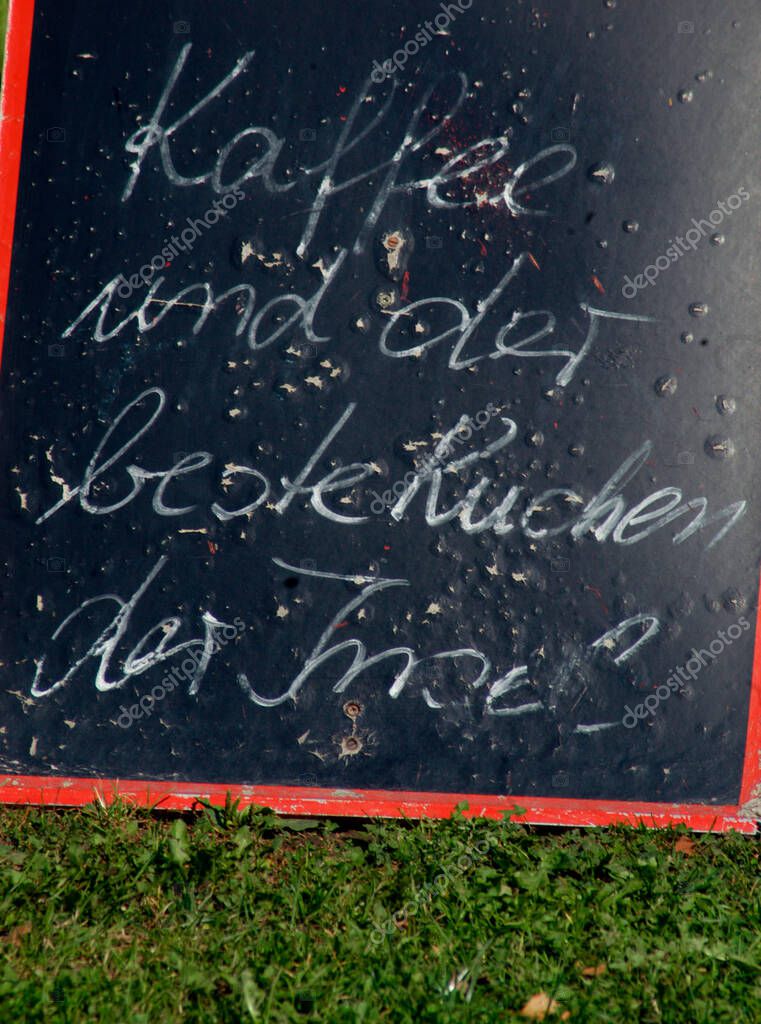 Kaffee
und der
beste Kuchen
der Insel
depositphotos
depositphotos
depositphotos
depositphotos
depositphotos
depositphotos
depositphotos
depositphotos